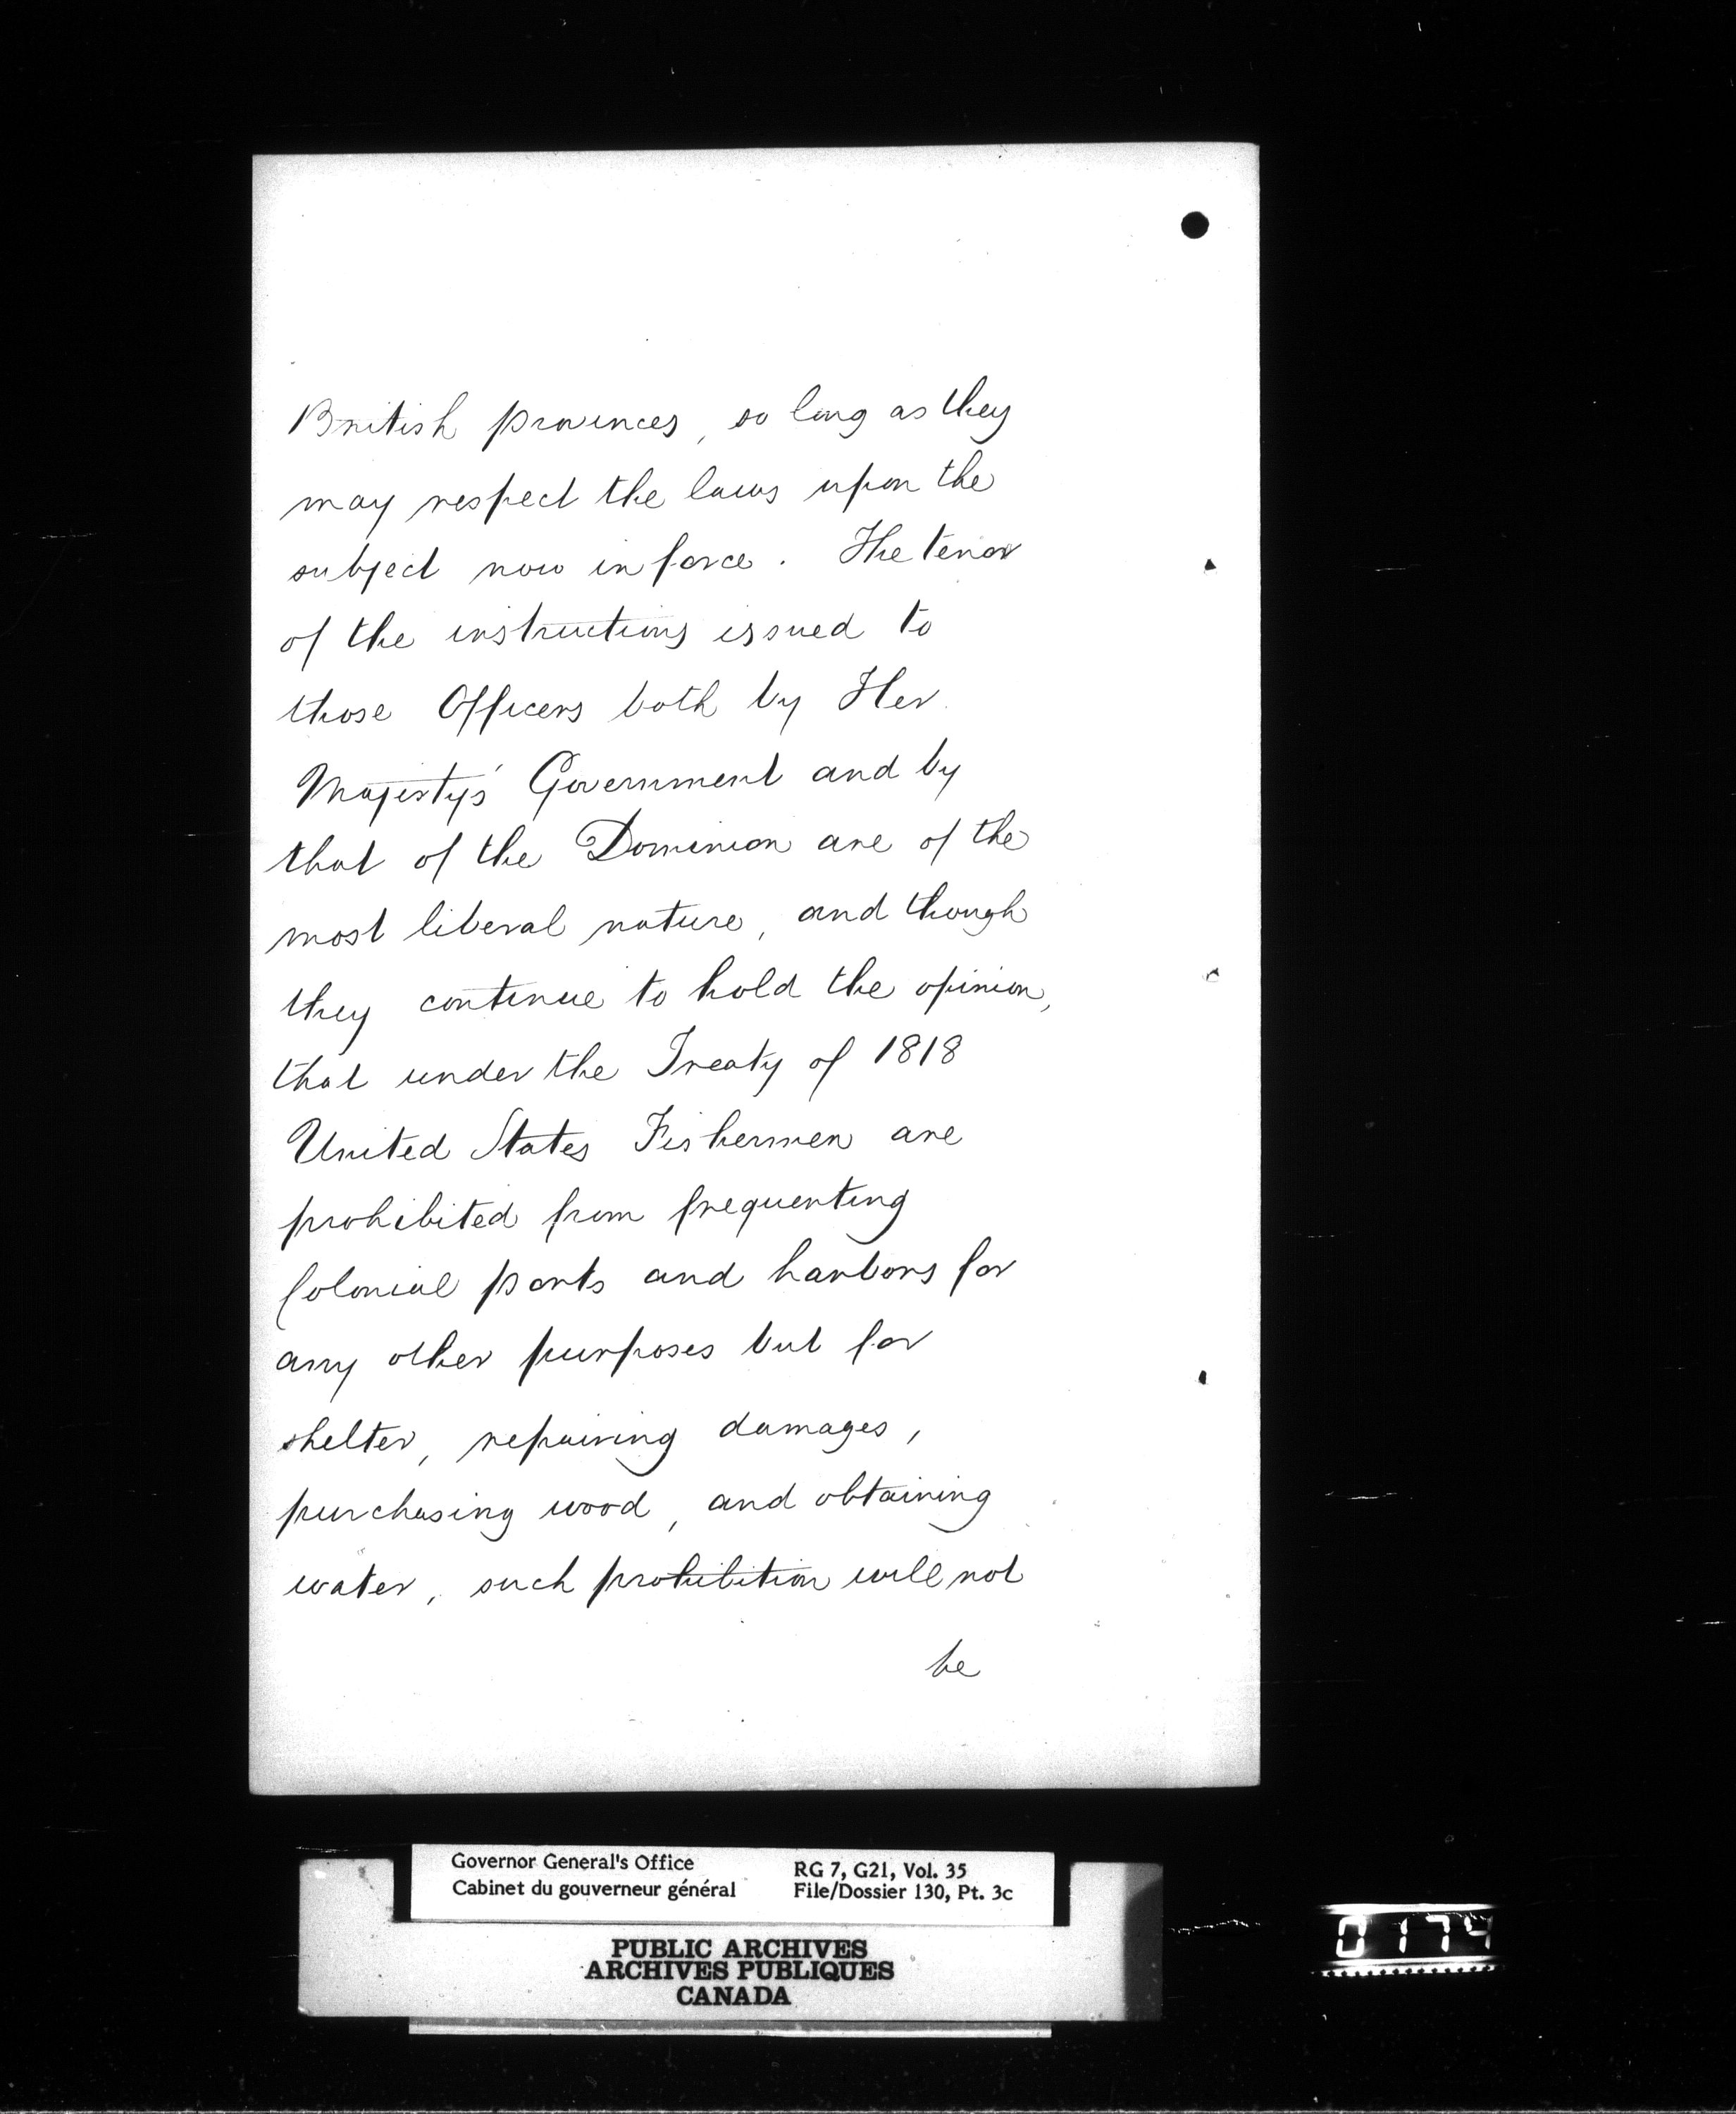 British provinces, so long as they
may respect the laws upon the
subject now in force. The tenor
of the instructions issued to
those Officers both by Her
Majesty's Government and by
that of the Dominion are of the
most liberal nature, and though
they continue to hold the opinion,
that under the Treaty of 1818
United States Fishermen are
prohibited from frequenting
Colonial ports and harbors for
any other purposes but for
shelter, repairing damages,
purchasing wood, and obtaining
water, such prohibition will not
be
Governor General's Office
Cabinet du gouverneur général
RG 7, G21, Vol. 35
File/Dossier 130, Pt. 3c
PUBLIC ARCHIVES
ARCHIVES PUBLIQUES
CANADA
0174